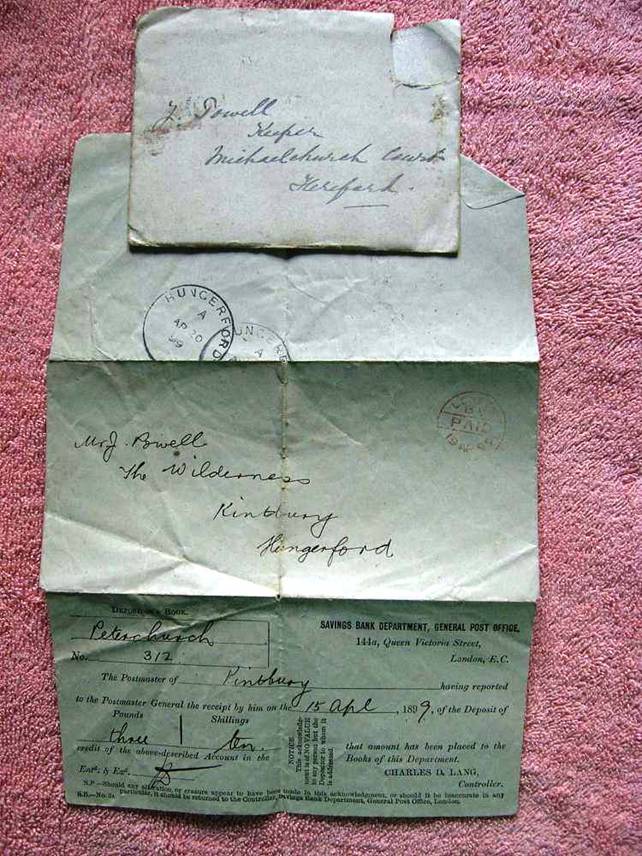 J. Powell
Keeper
Michaelchurch Court
Hereford.
HUNGERFORD
A
AP 20
99
UNGERF
A
PAID
Mr J. Powell
The Wilderness
Kintbury
Hungerford
DEPOSITOR'S BOOK.
Peterchurch
No. 312
SAVINGS BANK DEPARTMENT, GENERAL POST OFFICE,
144a, Queen Victoria Street,
London, E.C.
The Postmaster of Kintbury having reported
to the Postmaster General the receipt by him on the 15 Apl, 1899, of the Deposit of
Pounds Shillings
three ten
credit of the above-described Account in the
NOTICE.
This acknowledg-
ment is of NO VALUE
to any person but the
Depositor to whom it
is addressed.
that amount has been placed to the
Books of this Department.
Entd. & Exd.
CHARLES D. LANG,
Controller.
N.P.—Should any alteration or erasure appear to have been made in this acknowledgment, or should it be inaccurate in any
particular, it should be returned to the Controller, Savings Bank Department, General Post Office, London.
S.B.—No.